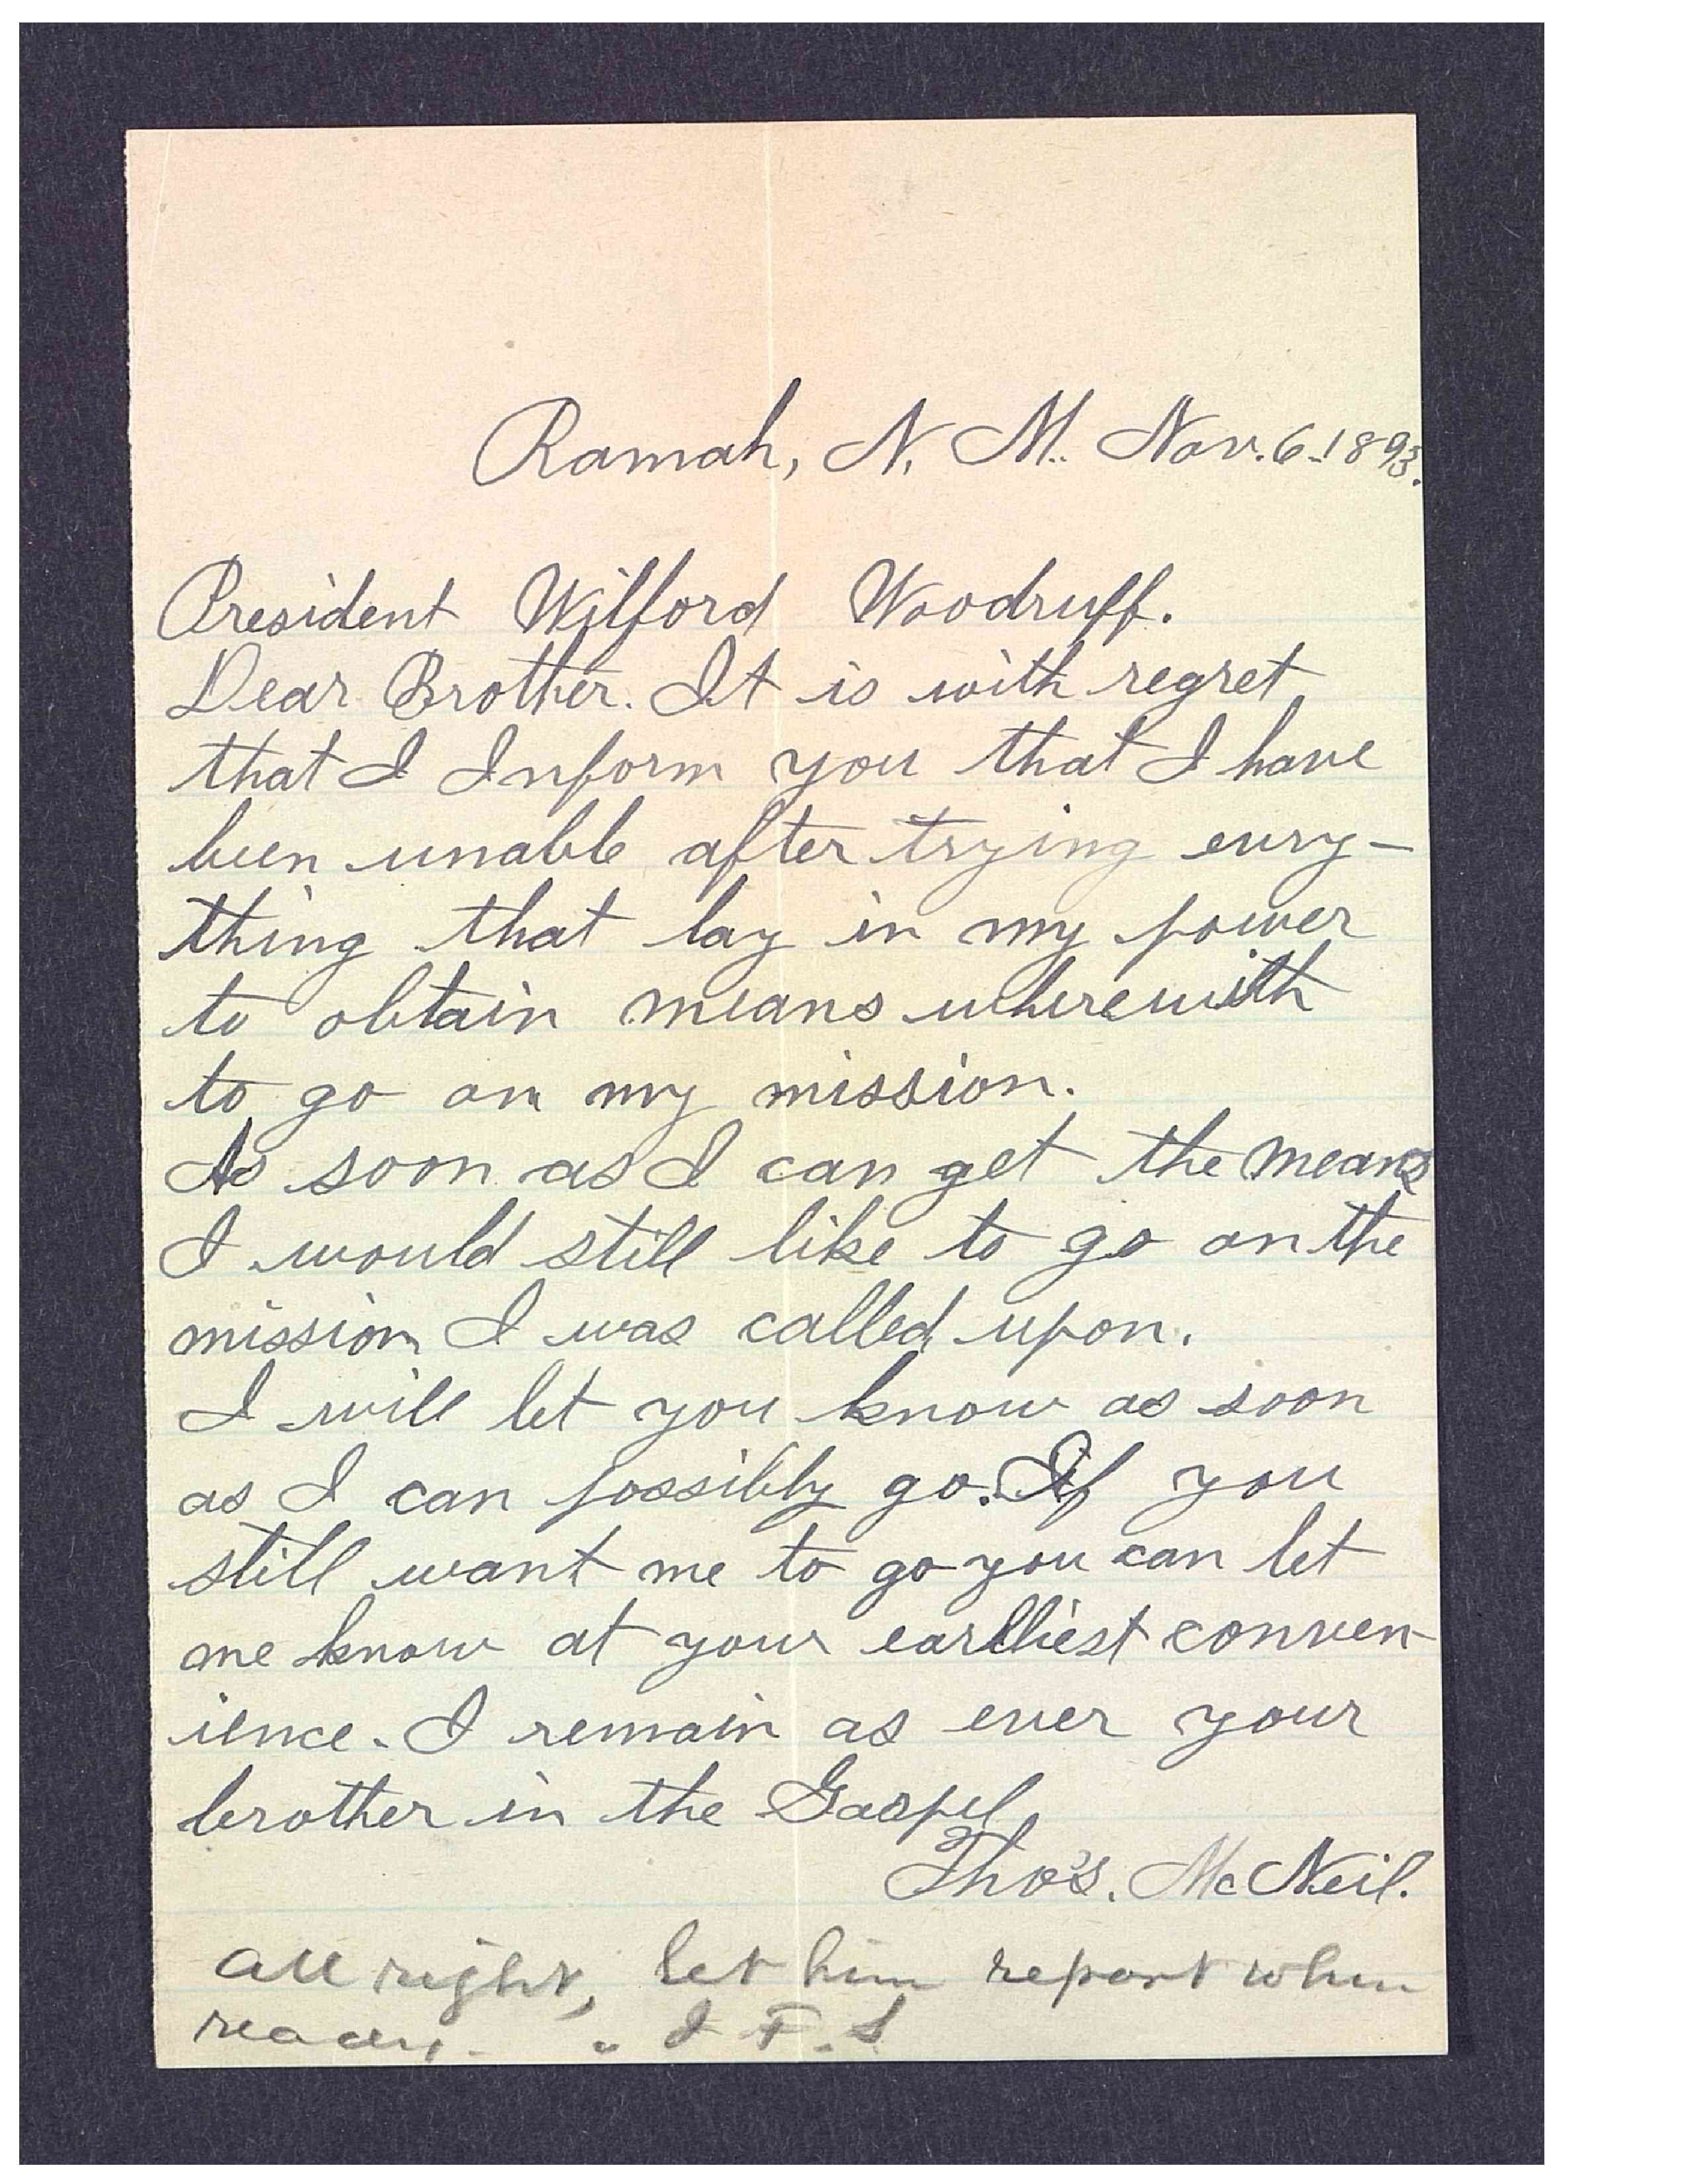 Ramah, N. M. Nov. 6-1893.
President Wilford Woodruff.
Dear Brother. It is with regret
that I Inform you that I have
been unable after trying every-
thing that lay in my power
to obtain means wherewith
to go on my mission.
As soon as I can get the means
I would still like to go on the
mission I was called upon.
I will let you know as soon
as I can possibly go. If you
still want me to go you can let
me know at your earlliest conven-
ience. I remain as ever your
brother in the Gospel,
Tho's. McNeil.
All right, let him report when
ready. J F. S